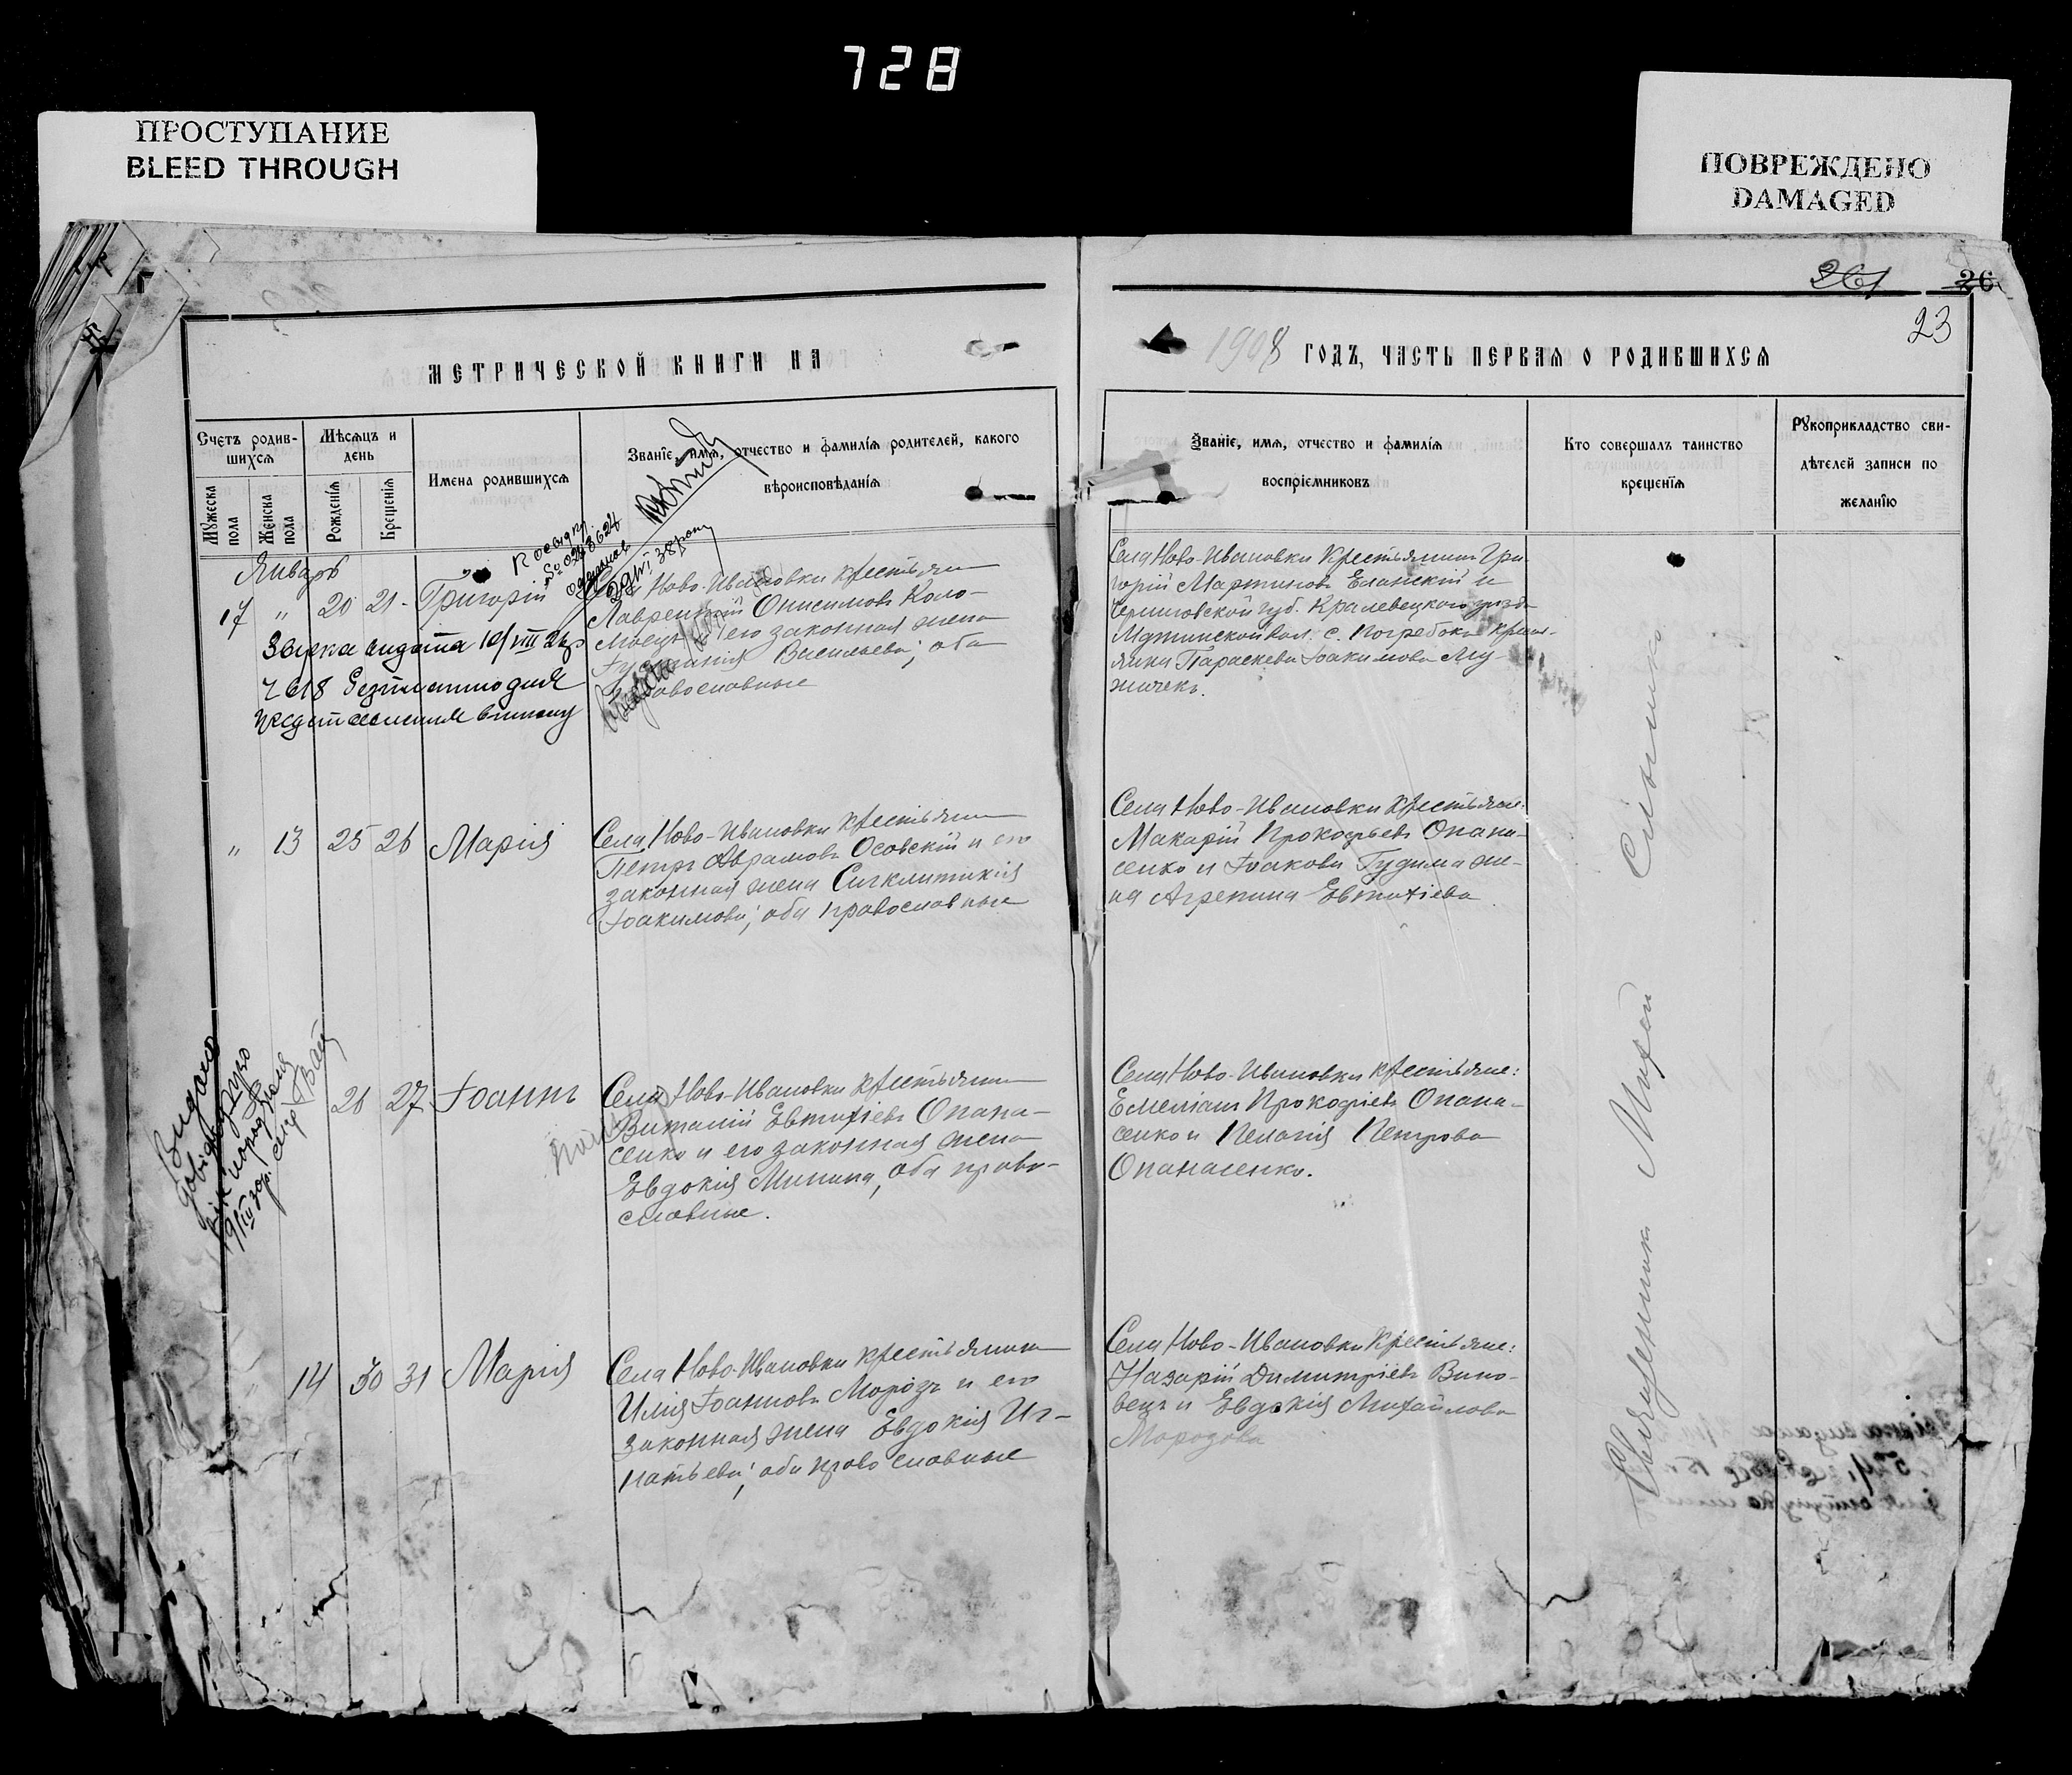 728
ПРОСТУПАНИЕ
BLEED THROUGH
ПОВРЕЖДЕНО
DAMAGED
261
26
23
МЕТРИЧЕСКОЙ КНИГИ НА
1908 ГОДЪ, ЧАСТЬ ПЕРВАЯ О РОДИВШИХСЯ
Счетъ родив-
шихся
Мужеска пола
Женска пола
Мѣсяцъ и
день
Рожденія
Крещенія
Имена родившихся
Званіе, имя, отчество и фамилія родителей, какого
вѣроисповѣданія
Званіе, имя, отчество и фамилія
воспріемниковъ
Кто совершалъ таинство
крещенія
Рукоприкладство сви-
дѣтелей записи по
желанію
Январь
17 " 20 21 Григорій
Села Ново-Ивановки крестьянин
Лаврентій Онисимовъ Коло-
и его законная жена
Васильева; оба
православные
Села Ново-Ивановки крестьянин Гри-
горій Мартиновъ Еланскій и
Черниговской губ. Кралевецкого уезда
вол. с. Погребокъ крест-
янка Параскева Іоакимова Му-
жичекъ.
видата 10/VIII 26 р
618
" 13 25 26 Марія
Села Ново-Ивановки крестьянин
Петръ Аврамовъ Осовскій и его
законная жена Сигклитикія
Іоакимова; оба православные
Села Ново-Ивановки крестьяне:
Макарій Прокофьевъ Опана-
сенко и Іоакова Гудима же-
на Агрепина Евтихіева
Видано
26 27 Іоаннъ
Села Ново-Ивановки крестьянин
Виталий Евтихіевъ Опана-
сенко и его законная жена
Евдокія Минина, оба право-
славные.
Села Ново-Ивановки крестьяне:
Емеліанъ Прокофіевъ Опана-
сенко и Пелагія Петрова
Опанасенко.
" 14 30 31 Марія
Села Ново-Ивановки крестьянин
Илія Іоанновъ Морозъ и его
законная жена Евдокія Иг-
натьева; оба православные
Села Ново-Ивановки крестьяне:
Назарій Димитріевъ Вино-
вецъ и Евдокія Михайлова
Морозова
Священникъ Михей